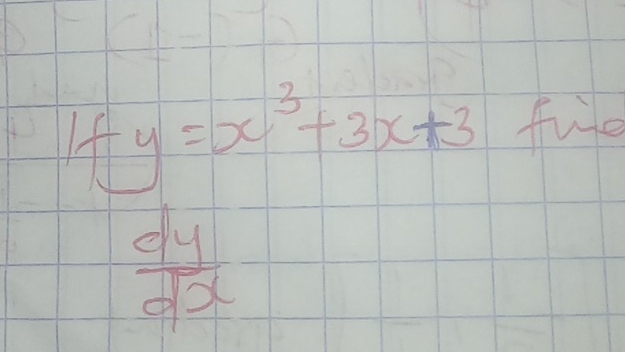 If y = x³ + 3x + 3 find
dy/dx